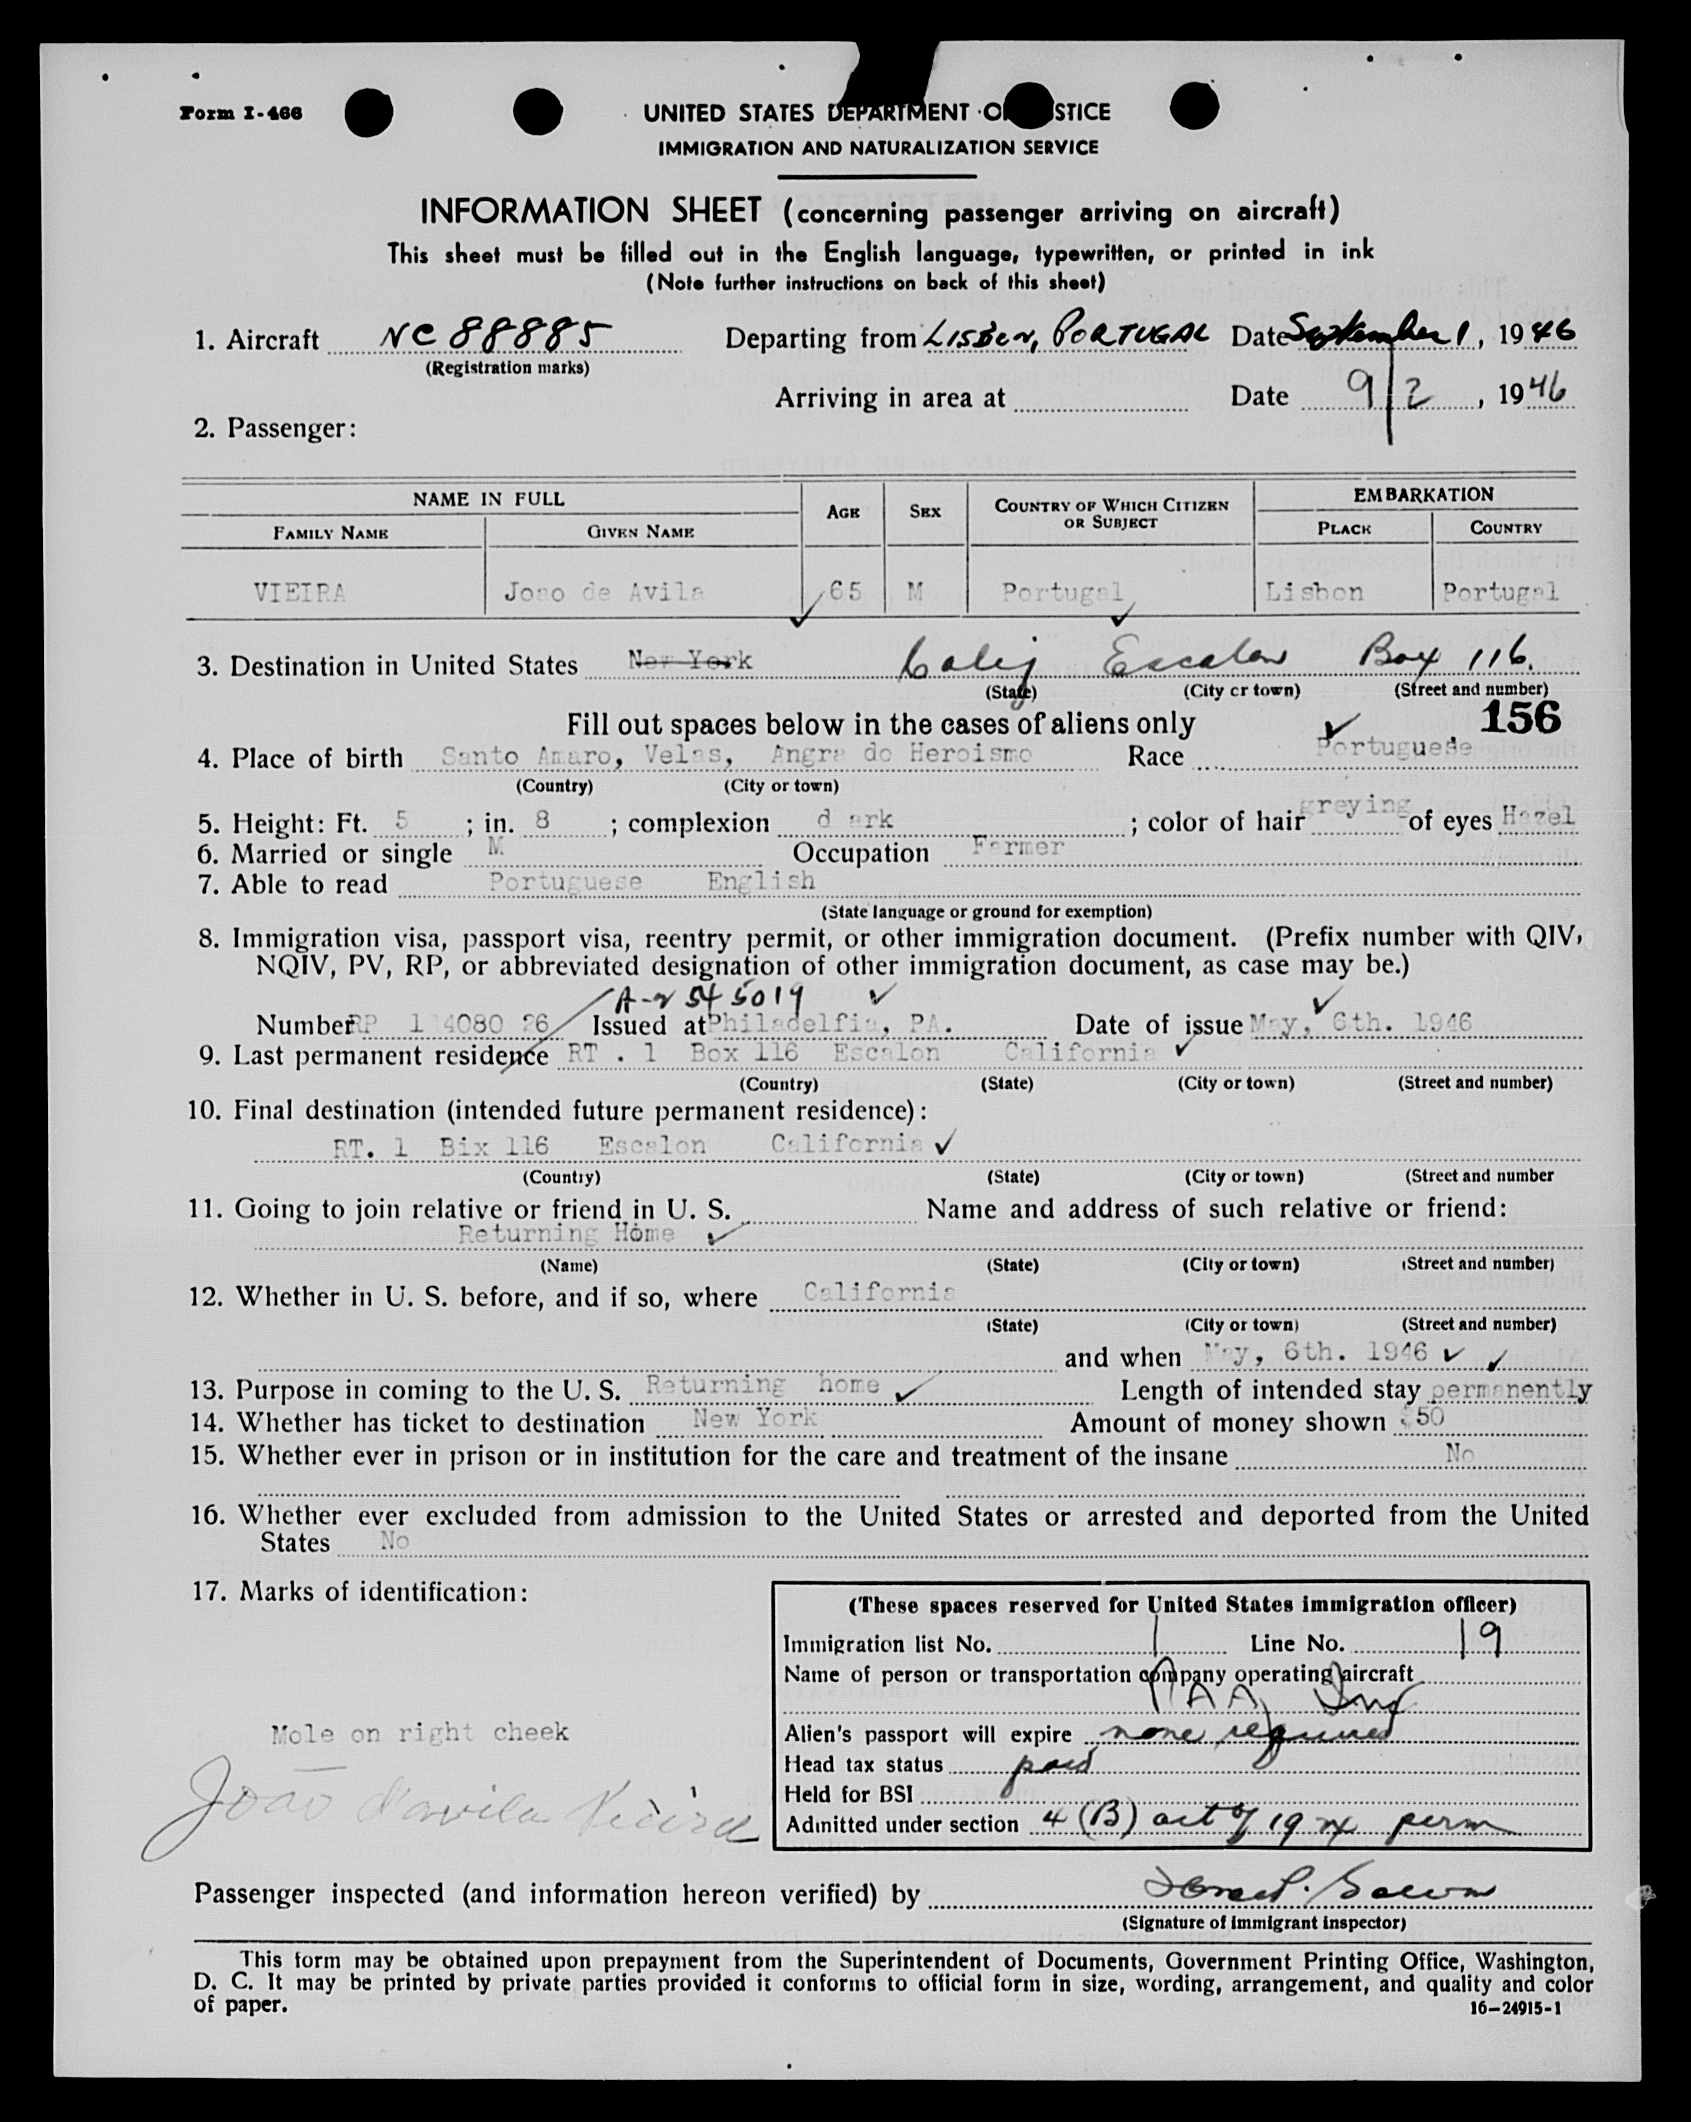 Form I-466
UNITED STATES DEPARTMENT O STICE
IMMIGRATION AND NATURALIZATION SERVICE
INFORMATION SHEET (concerning passenger arriving on aircraft)
This sheet must be filled out in the English language, typewritten, or printed in ink
(Note further instructions on back of this sheet)
1. Aircraft NC 88885 Departing from LISBON, PORTUGAL Date September 1, 1946
(Registration marks)
Arriving in area at Date 9/2, 1946
2. Passenger:
NAME IN FULL AGE SEX COUNTRY OF WHICH CITIZEN OR SUBJECT EMBARKATION
FAMILY NAME GIVEN NAME PLACE COUNTRY
VIEIRA Joao de Avila 65 M Portugal Lisbon Portugal
3. Destination in United States New York Calif Escalon Box 116.
(State) (City or town) (Street and number)
Fill out spaces below in the cases of aliens only 156
4. Place of birth Santo Amaro, Velas, Angra do Heroismo Race Portuguese
(Country) (City or town)
5. Height: Ft. 5 ; in. 8 ; complexion d ark ; color of hair greying of eyes Hazel
6. Married or single M Occupation Farmer
7. Able to read Portuguese English
(State language or ground for exemption)
8. Immigration visa, passport visa, reentry permit, or other immigration document. (Prefix number with QIV,
NQIV, PV, RP, or abbreviated designation of other immigration document, as case may be.)
A-2 545019
Number RP 1 4080 26 Issued at Philadelfia, PA. Date of issue May, 6th. 1946
9. Last permanent residence RT . 1 Box 116 Escalon California
(Country) (State) (City or town) (Street and number)
10. Final destination (intended future permanent residence):
RT. 1 Bix 116 Escalon California
(Country) (State) (City or town) (Street and number
11. Going to join relative or friend in U. S. Name and address of such relative or friend:
Returning Home
(Name) (State) (City or town) (Street and number)
12. Whether in U. S. before, and if so, where California
(State) (City or town) (Street and number)
and when May, 6th. 1946
13. Purpose in coming to the U. S. Returning home Length of intended stay permanently
14. Whether has ticket to destination New York Amount of money shown $50
15. Whether ever in prison or in institution for the care and treatment of the insane No
16. Whether ever excluded from admission to the United States or arrested and deported from the United
States No
17. Marks of identification:
Mole on right cheek
João d'avila Vieira
(These spaces reserved for United States immigration officer)
Immigration list No. 1 Line No. 19
Name of person or transportation company operating aircraft
PAA Inc
Alien's passport will expire none required
Head tax status paid
Held for BSI
Admitted under section 4 (B) act of 1924 perm
Passenger inspected (and information hereon verified) by
(Signature of immigrant inspector)
This form may be obtained upon prepayment from the Superintendent of Documents, Government Printing Office, Washington,
D. C. It may be printed by private parties provided it conforms to official form in size, wording, arrangement, and quality and color
of paper. 16—24915-1